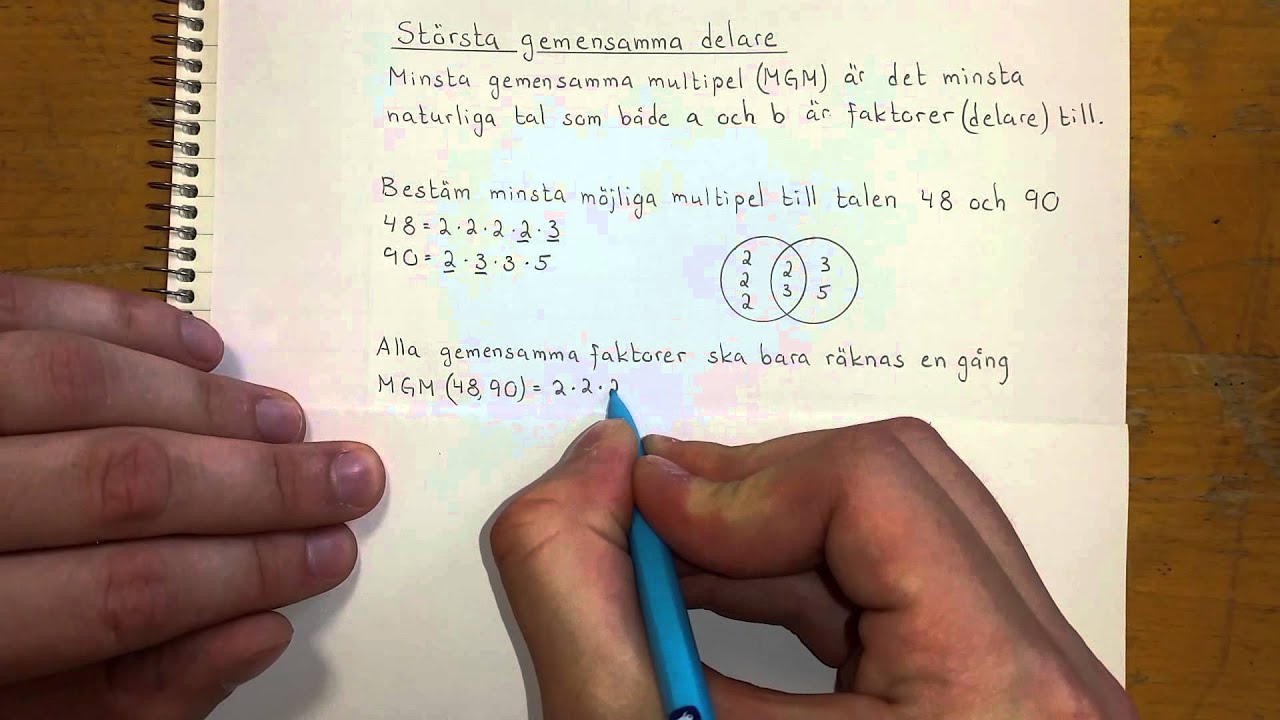 Största gemensamma delare
Minsta gemensamma multipel (MGM) är det minsta
naturliga tal som både a och b är faktorer (delare) till.
Bestäm minsta möjliga multipel till talen 48 och 90
48 = 2 · 2 · 2 · 2 · 3
90 = 2 · 3 · 3 · 5
2 2 3
2 3 5
2
Alla gemensamma faktorer ska bara räknas en gång
MGM (48, 90) = 2 · 2 · 2